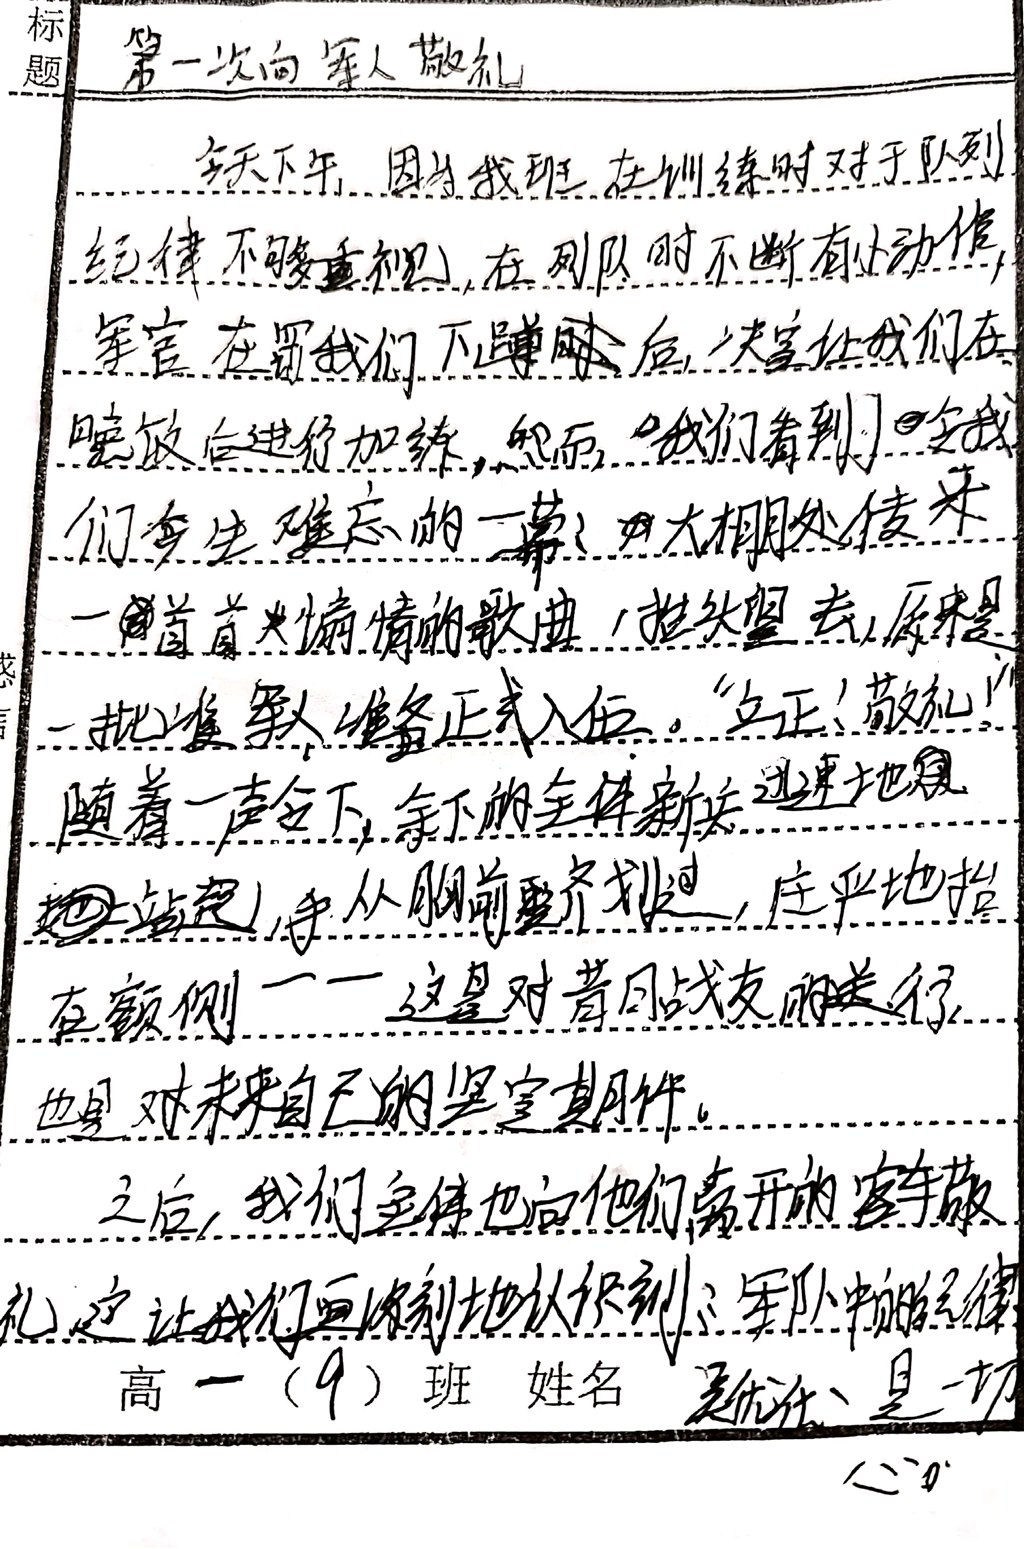 标题
第一次向军人敬礼
今天下午,因为我班在训练时对于队列
纪律不够重视,在列队时不断有小动作,
军官在罚我们下蹲后,决定让我们在
解散后进行加练,然而,我们看到了令我
们今生难忘的一幕:大棚处传来
一首首火热情的歌曲,抬头望去,原来是
一批准军人准备正式入伍。“立正!敬礼!”
随着一声令下,余下的全体新兵迅速地
站定,手从胸前整齐划过,庄严地抬
在额侧——这是对昔日战友的送行,
也是对未来自己的坚定期许。
之后,我们全体也向他们离开的客车敬
礼,这让我们更深刻地认识到:军队中的纪律
高一(9)班 姓名 是一切